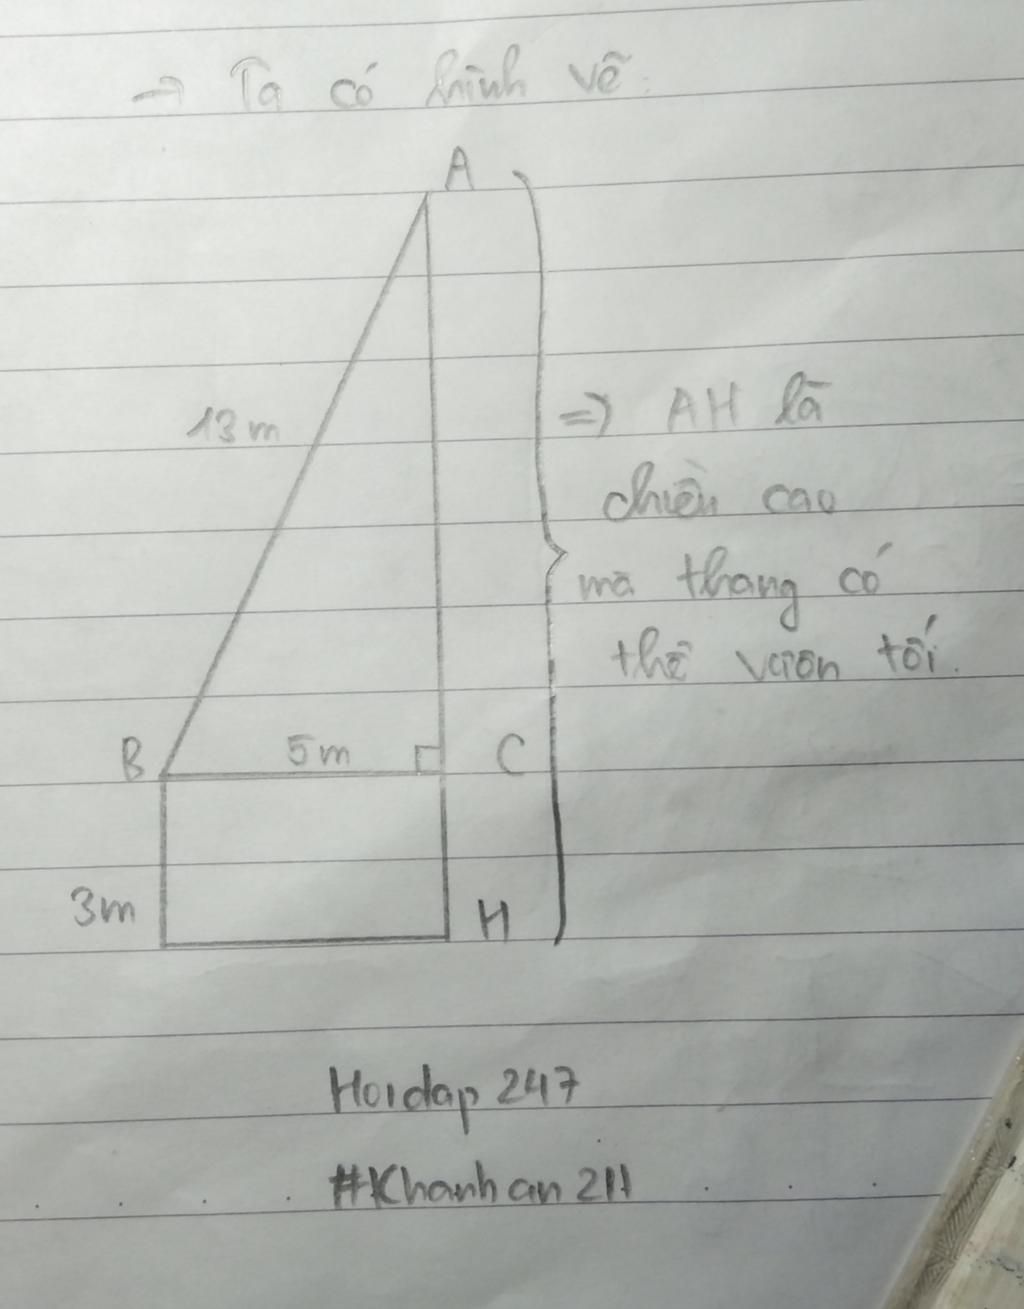 → Ta có hình vẽ:
A
13 m
=> AH là
chiều cao
mà thang có
thể vươn tới.
B
5m
C
3m
H
Hoidap 247
#Khanh an 211